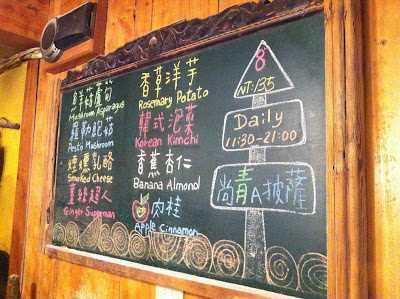 鮮菇蘆筍
Mushroom Asparagus
羅勒鮑菇
Pesto Mushroom
煙燻乳酪
Smoked Cheese
薑餅超人
Ginger Superman
香草洋芋
Rosemary Potato
韓式泡菜
Korean Kimchi
香蕉杏仁
Banana Almond
肉桂
Apple Cinnamon
8
NT:135
Daily
11:30-21:00
尚青A披薩